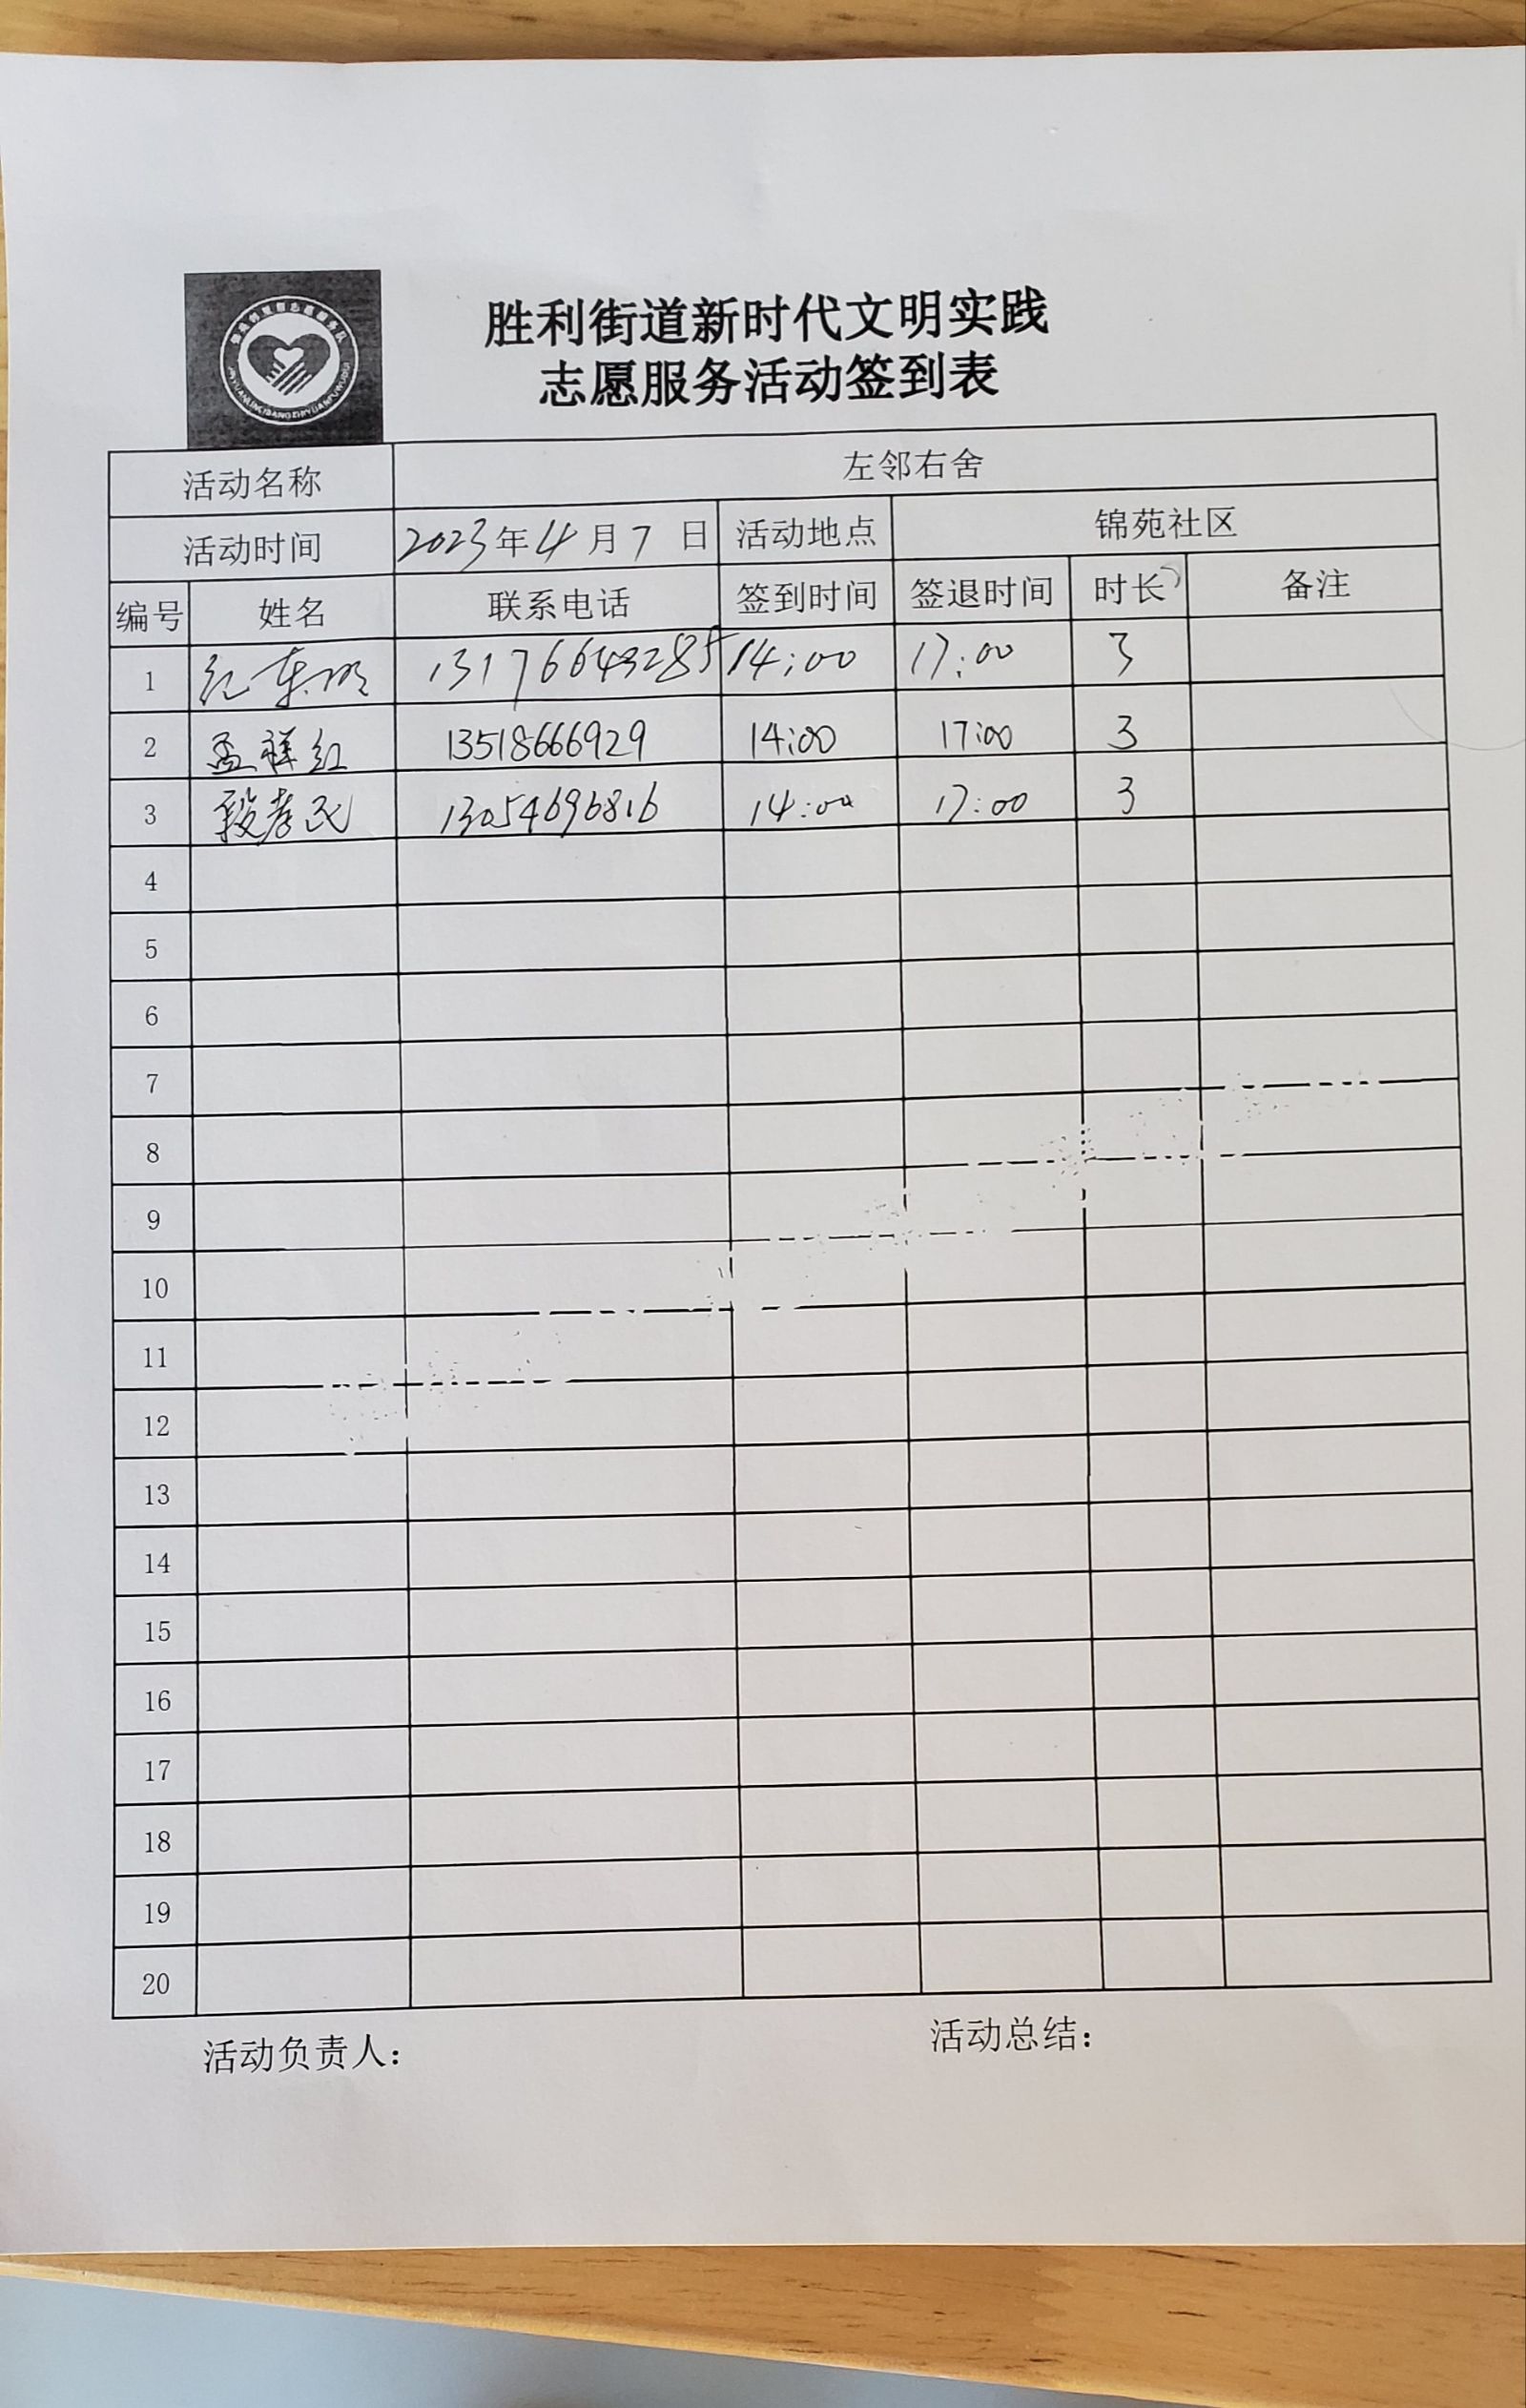 胜利街道新时代文明实践
志愿服务活动签到表
活动名称 左邻右舍
活动时间 2023年4月7日 活动地点 锦苑社区
编号 姓名 联系电话 签到时间 签退时间 时长 备注
1 纪东明 13176643285 14:00 17:00 3
2 孟祥红 13518666929 14:00 17:00 3
3 段孝民 13054696816 14:00 17:00 3
4
5
6
7
8
9
10
11
12
13
14
15
16
17
18
19
20
活动负责人： 活动总结：